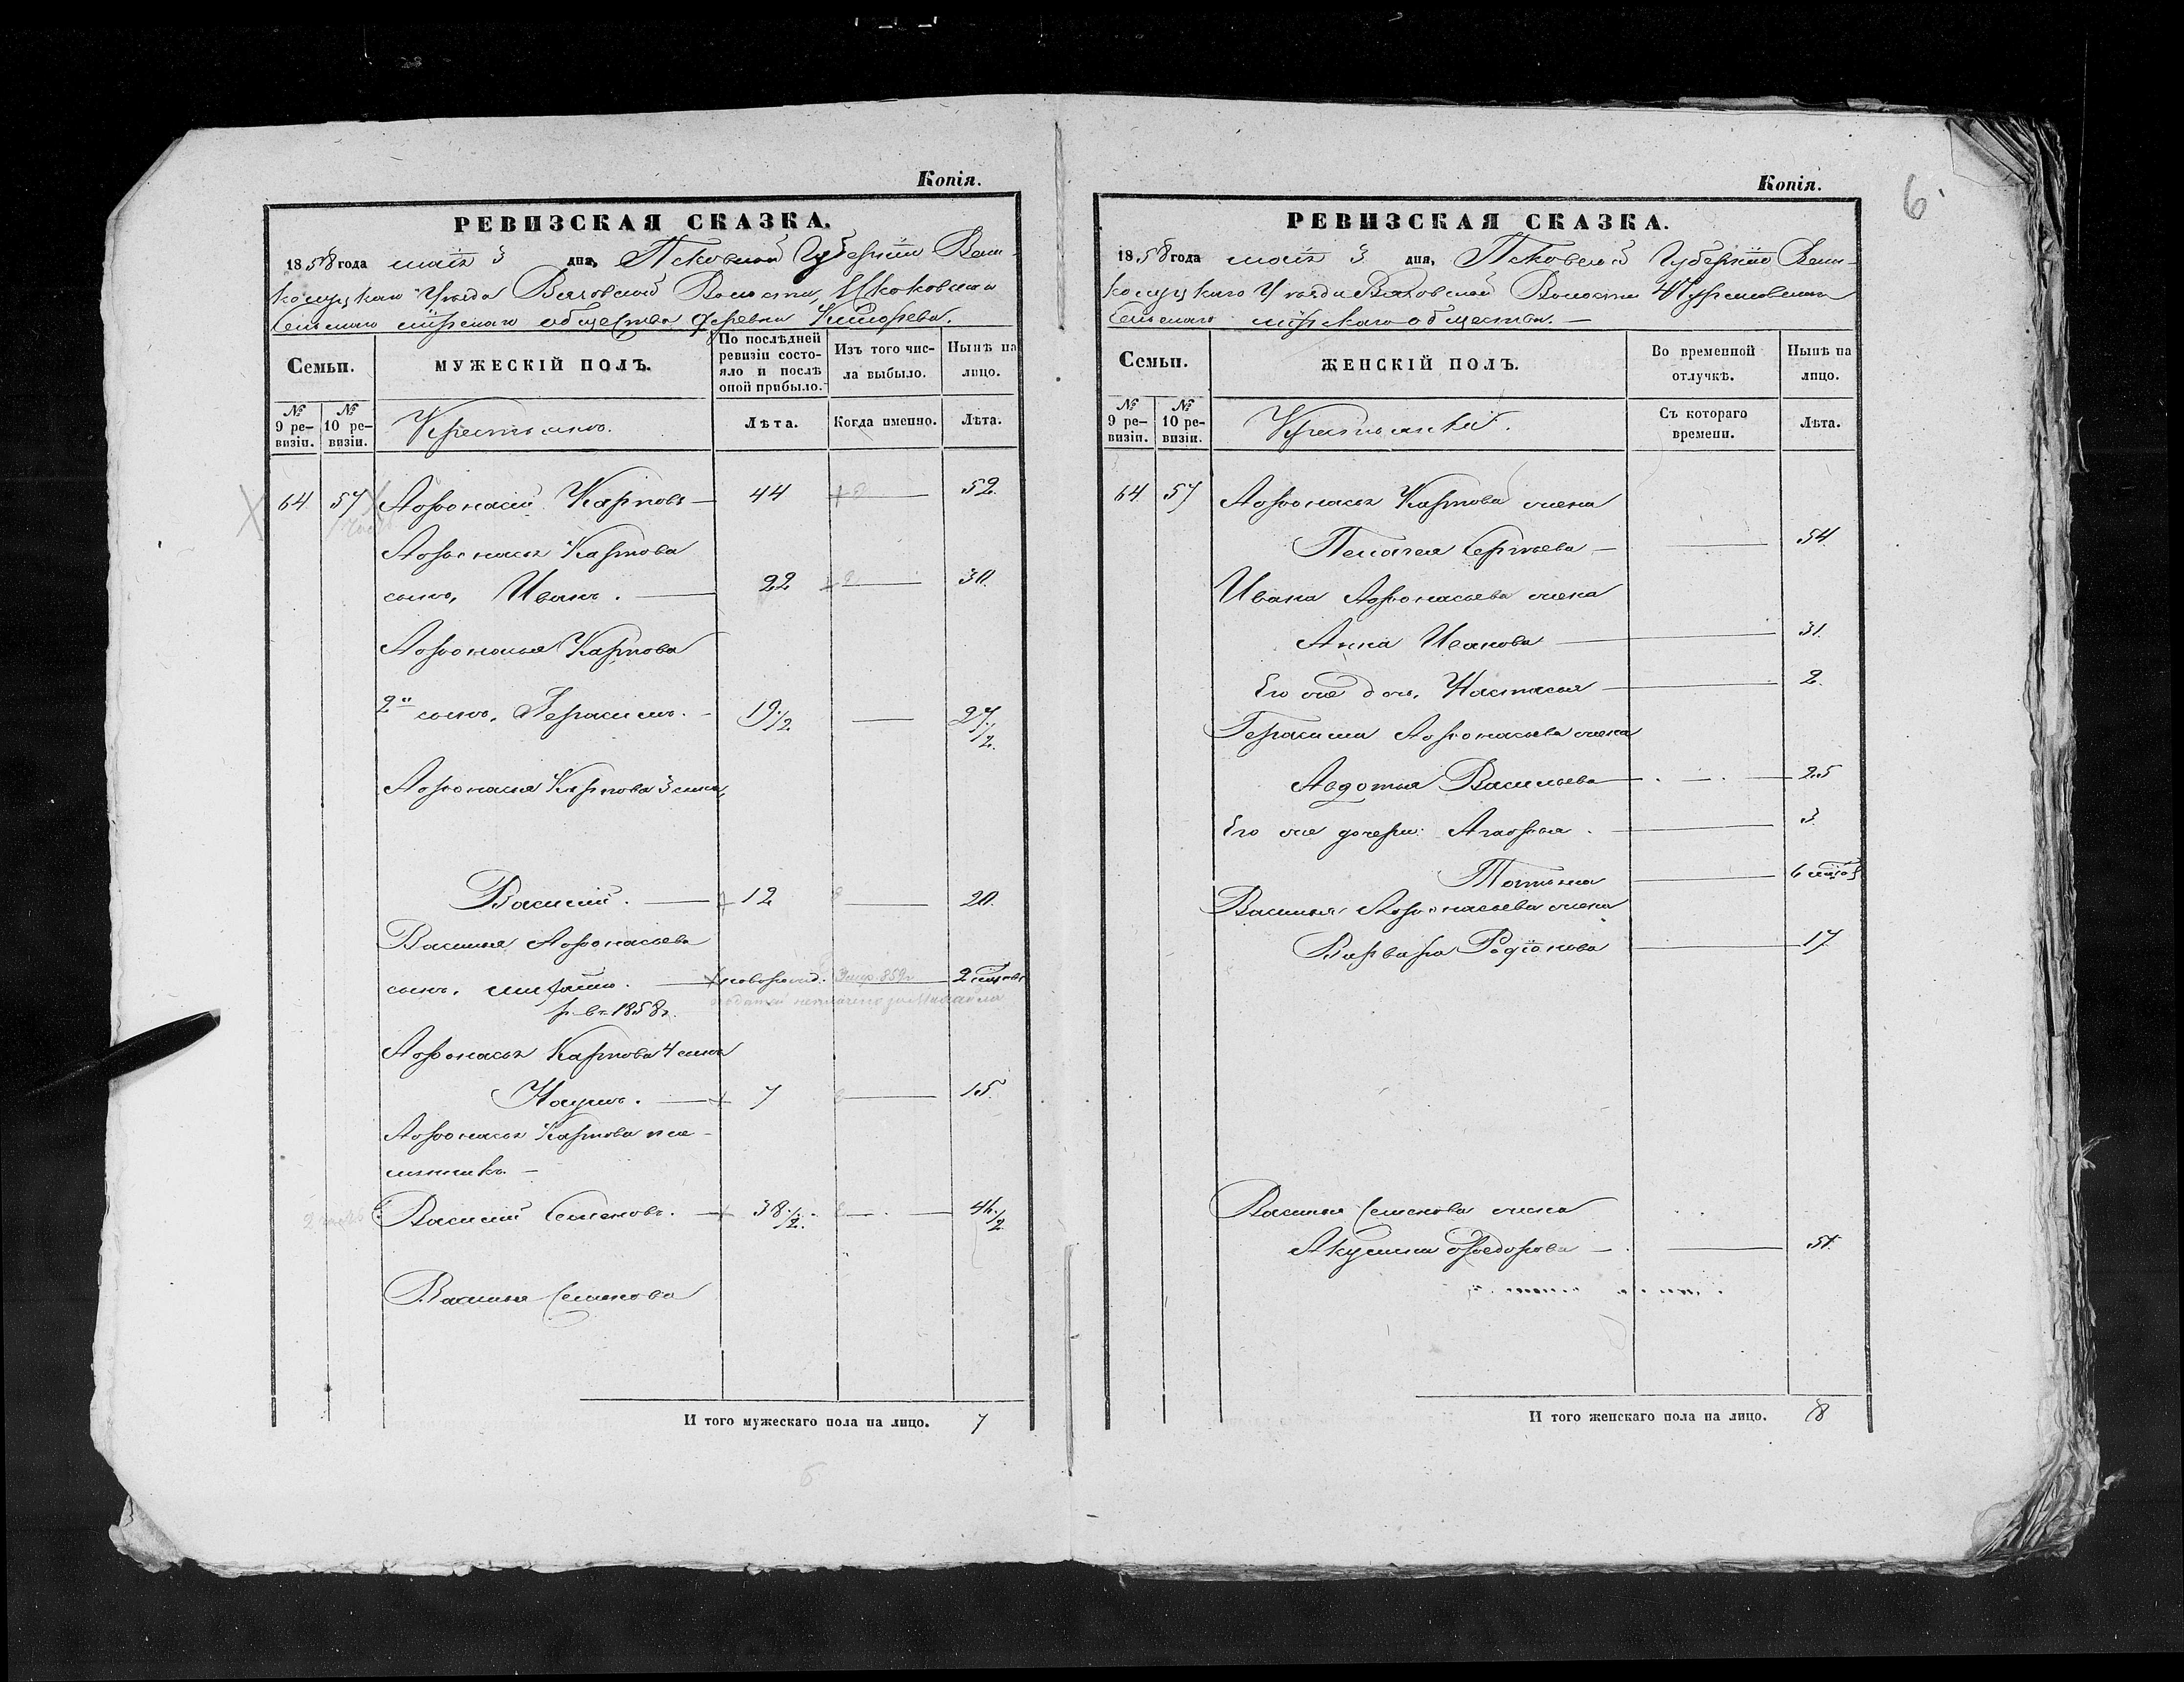 Копія.
РЕВИЗСКАЯ СКАЗКА.
1858 года маія 3 дня, Псковской Губерніи Вели-
колуцкаго Уѣзда Вязовской Волости,
Сельскаго мірскаго общества деревни
Семьи.
МУЖЕСКІЙ ПОЛЪ.
По послѣдней ревизіи состо-яло и послѣ оной прибыло.
Изъ того чис-ла выбыло.
Нынѣ на лицо.
№ 9 ре-визіи.
№ 10 ре-визіи.
Крестьянъ.
Лѣта.
Когда именно.
Лѣта.
64 57 Афонасій Карповъ 44 52
Афонасья Карпова
сынъ, Иванъ. 22 30.
Афонасья Карпова
2й сынъ, Герасимъ. 19 1/2 27 1/2.
Афонасья Карпова 3 сынъ,
Василій. 12 20.
Василья Афонасьева
сынъ, новорожд. 2 мѣсяцовъ
р. въ 1858 г.
Афонасья Карпова 4 сынъ
Наумъ. 7 15.
Афонасья Карпова пле-
мянникъ
Василій Семеновъ. 38 1/2. 46 1/2
Василья Семенова
И того мужескаго пола на лицо. 7
Копія.
6
РЕВИЗСКАЯ СКАЗКА.
1858 года маія 3 дня, Псковской Губерніи Вели-
колуцкаго Уѣзда Вязовской Волости
Сельскаго мірскаго общества.
Семьи.
ЖЕНСКІЙ ПОЛЪ.
Во временной отлучкѣ.
Нынѣ на лицо.
№ 9 ре-визіи.
№ 10 ре-визіи.
Крестьянки.
Съ котораго времени.
Лѣта.
64 57 Афонасья Карпова жена
Пелагея Сергѣева 54.
Ивана Афонасьева жена
Анна Иванова 31.
Его же дочь, Настасья 2.
Герасима Афонасьева жена
Авдотья Васильева 25
Его же дочери: Агафья 3.
Татьяна 6 мѣсяц.
Василья Афонасьева жена
Варвара Родіонова 17
Василья Семенова жена
Акулина Федорова 51.
И того женскаго пола на лицо. 8